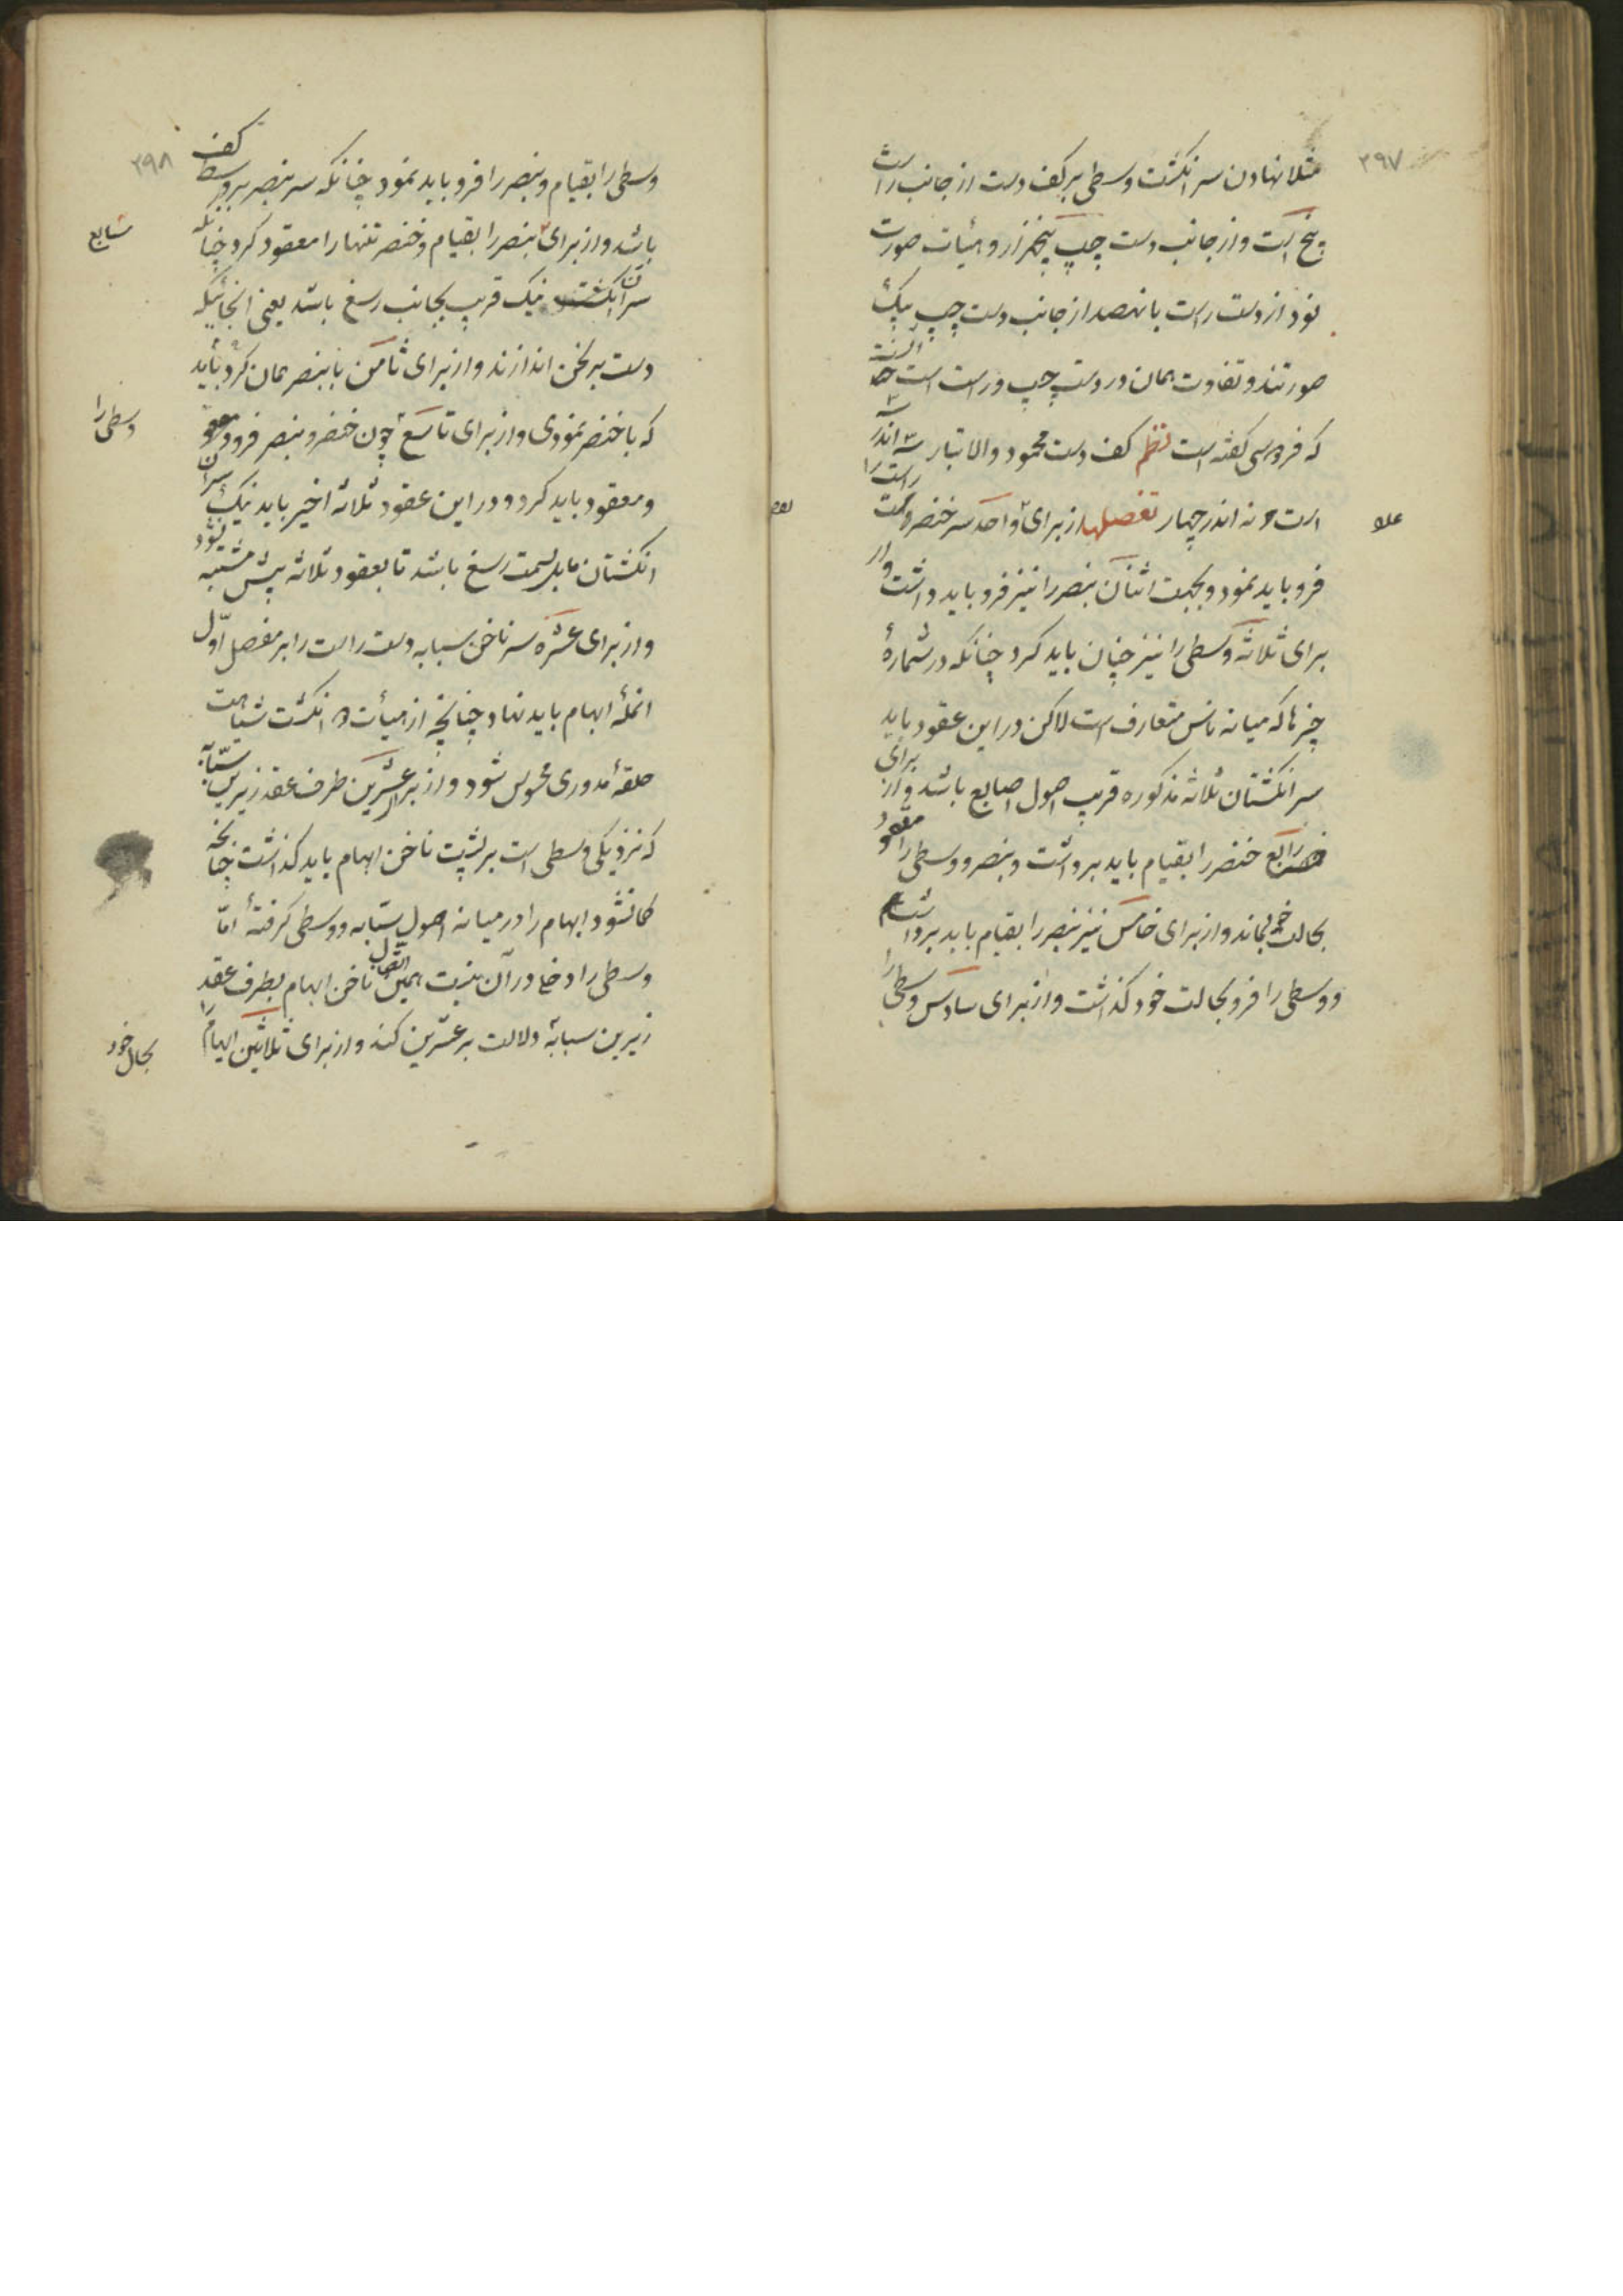 ۳۹۷
مثلا نهادن سر انکشت وسطی بر کف دست از جانب راست
پنج است و از جانب دست چپ پنجهزار و هیأت صورت
نود از دست راست با نهصد از جانب دست چپ بیک
صورتند و تفاوت همان در دست چپ و راست است
که فردوسی کفته است نظم کف دست محمود والا تبار نه اندر
است و نه اندر چهار تفصیلها از برای واحد سر خنصر دست راست را
فرو باید نمود و بجهت اثنان بنصر را نیز فرو باید داشت و از
برای ثلاثه وسطی را نیز چنان باید کرد چنانکه در شمارهٔ
چیزها که میانه ناس متعارف است لاکن در این عقود باید
سر انکشتان ثلاثه مذکوره قریب اصول اصابع باشد و از برای
رابع خنصر را بقیام باید برداشت و بنصر و وسطی را معقود
بحالت خود بماند و از برای خامس نیز بنصر را بقیام باید برداشت
و وسطی را فرو بحالت خود کذاشت و از برای سادس وسطی را
۳۹۸
وسطی را بقیام و بنصر را فرو باید نمود چنانکه سر بنصر بر وسط کف
باشد و از برای بنصر را بقیام و خنصر تنها را معقود کرد چنانکه
سابع
سر آن انکشت نیک قریب بجانب رسغ باشد یعنی آنجائیکه
دست برنجن اندازند و از برای ثامن با بنصر همان کرد باید
که با خنصر نمودی و از برای تاسع چون خنصر و بنصر فرود
وسطی را
و معقود باید کرد و در این عقود ثلاثه اخیر باید نیک سر آن
انکشتان مایل بسمت رسغ باشد تا بعقود ثلاثه پیش مشتبه نشود
و از برای عشره سر ناخن سبابه دست راست را بر مفصل اول
انملهٔ ابهام باید نهاد چنانچه از هیأت دو انکشت شباهت
حلقهٔ مدوری محسوس شود و از برای عشرین طرف عقد زیرین سبابه
که نزدیکی وسطی است بر پشت ناخن ابهام باید کذاشت چنانچه
کمان شود ابهام را در میانه اصول سبابه و وسطی کرفتهٔ اما
وسطی را دخل در آن نیست همین اتصال ناخن ابهام بطرف عقد
زیرین سبابه دلالت بر عشرین کند و از برای ثلاثین ابهام را
بحال خود